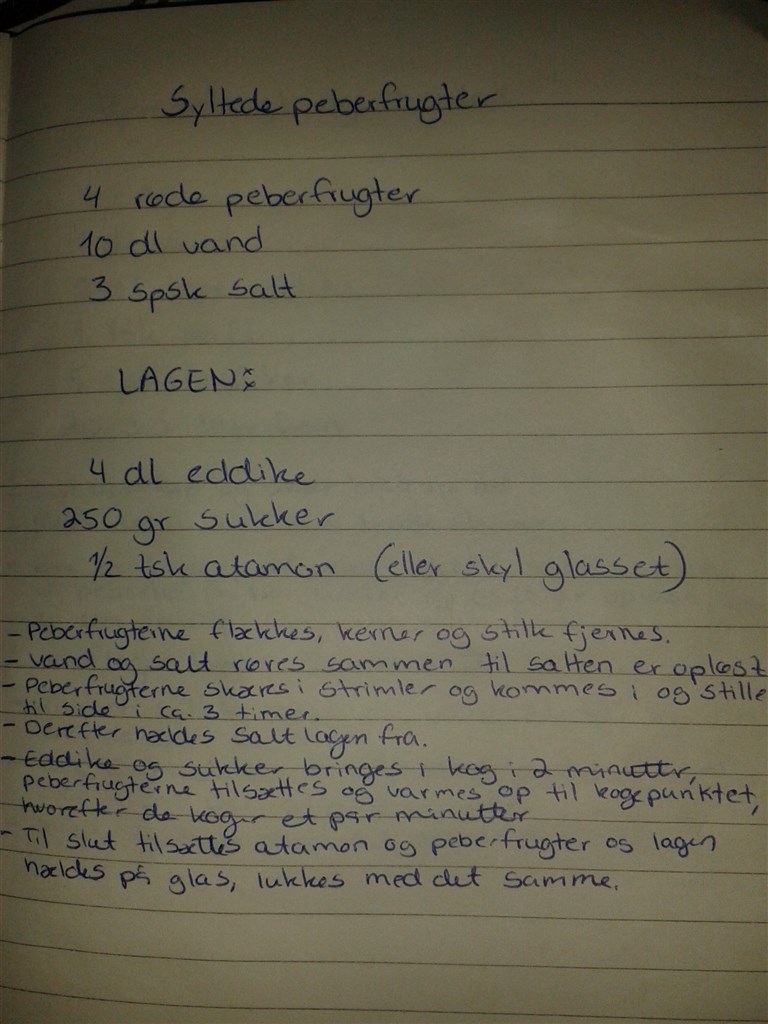 Syltede peberfrugter
4 røde peberfrugter
10 dl vand
3 spsk salt
LAGEN:
4 dl eddike
250 gr sukker
1/2 tsk atamon (eller skyl glasset)
- Peberfrugterne flækkes, kerner og stilk fjernes.
- vand og salt røres sammen til salten er opløst
- Peberfrugterne skæres i strimler og kommes i og stilles
til side i ca. 3 timer.
- Derefter hældes saltlagen fra.
- Eddike og sukker bringes i kog i 2 minutter,
peberfrugterne tilsættes og varmes op til kogepunktet,
hvorefter de koger et par minutter
- Til slut tilsættes atamon og peberfrugter og lagen
hældes på glas, lukkes med det samme.